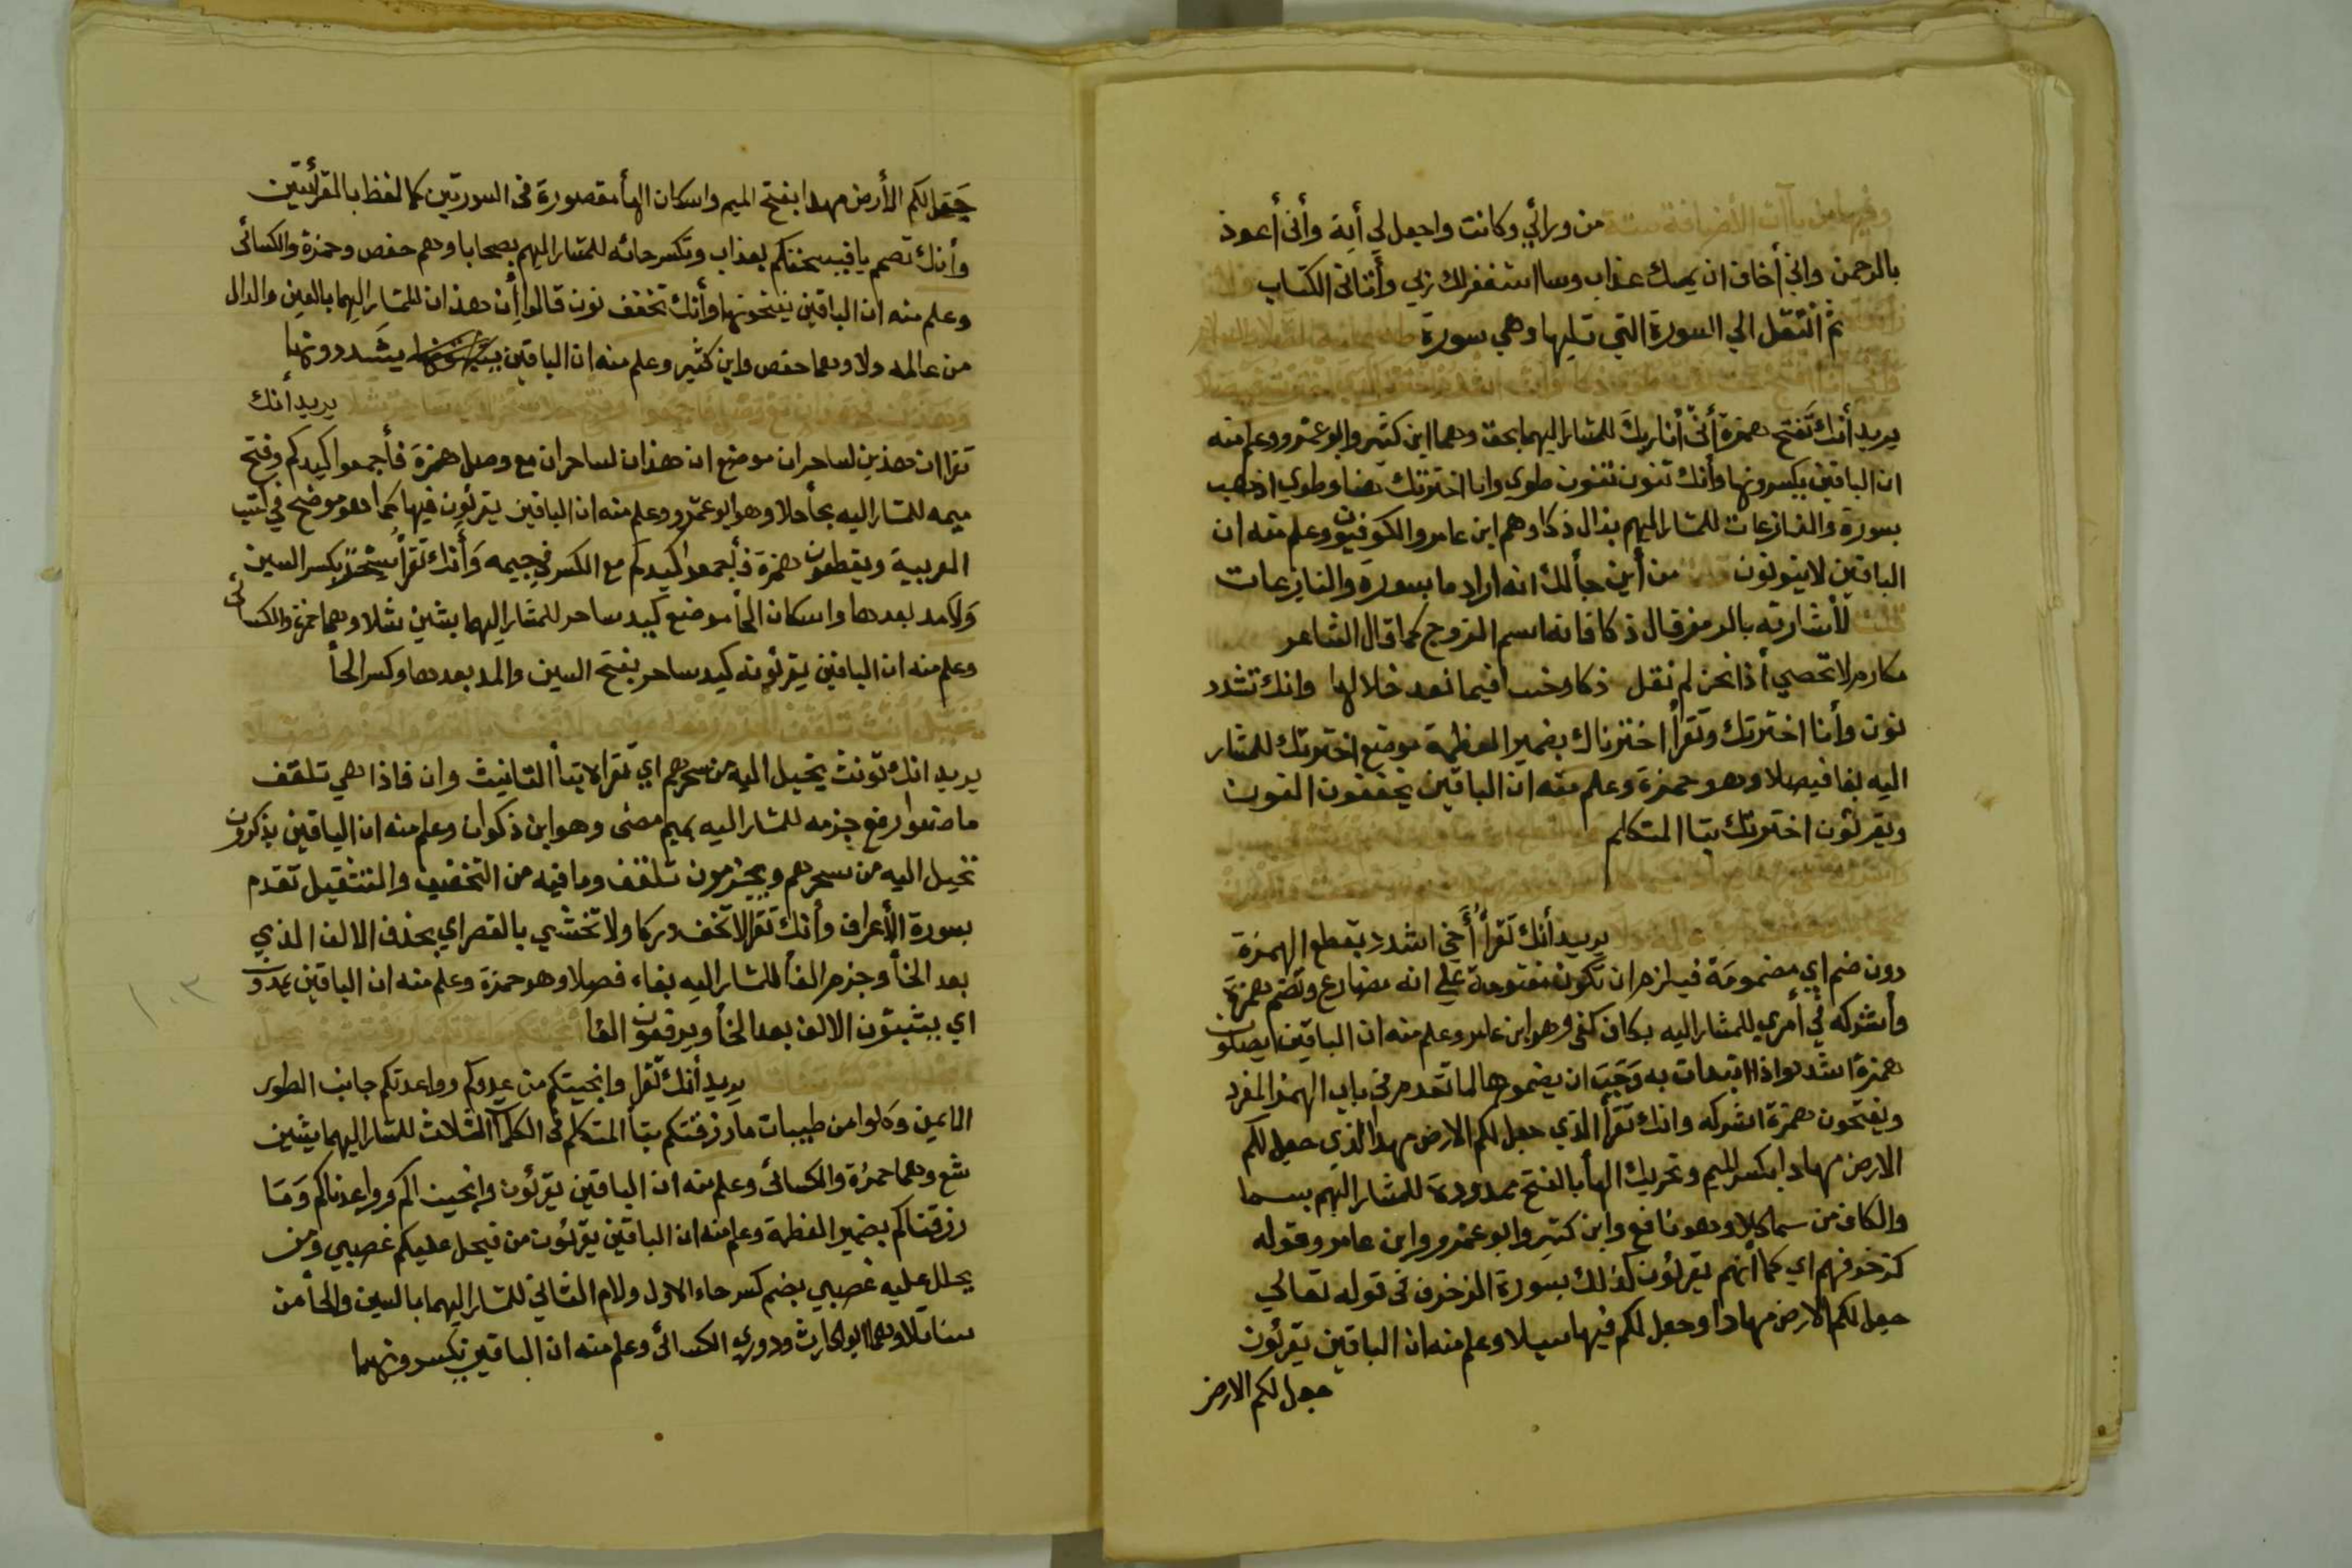 وفيها من ياآت الأضافة ستة من ورائي وكانت واجعل لي أية وأنى أعوذ
بالرحمن واني أخاف ان يمسك عذاب وسا استغفر لك ربي وأتاني الكتاب
ثم انتقل الي السورة التي تليها وهي سورة
يريد أنك تفتح همزة أنّي أنا ربك للمشار اليهما بحق وهما ابن كثير وابو عمرو وعلم منه
ان الباقين يكسرونها وأنك تنون نون طوي وانا اخترتك هنا وطوي اذهب
بسورة والنازعات للمشار اليهم بذال ذكا وهم ابن عامر والكوفيون وعلم منه ان
الباقين لا ينونون من أين جألك انه اراد ما بسورة والنازعات
قلت لأشارته بالرمز قال ذكا فانه اسم الفروج كما قال الشاعر
مكارم لا تحصي أذا نحن لم نقل ذكا وخبا فيما نعد خلالها وانك تشدد
نون وأنا اخترتك وتقرأ اخترناك بضمير العظمة موضع اخترتك للمشار
اليه بفا فيصلا وهو حمزة وعلم منه ان الباقين يخففون النون
ويقرئون اخترتك بتا المتكلم
يريد أنك تقرأ أخي اشدد بقطع الهمزة
دون ضم اي مضمومة فيلزم ان تكون مفتوحة علي انه مضارع وتضم همزة
وأشركه في أمري للمشار اليه بكاف كفي وهو ابن عامر وعلم منه ان الباقين يصلون
همزة اشدد واذا ابتدات به وجب ان يضموها لما تقدم في باب الهمز المفرد
ويفتحون همزة اشركه وانك تقرأ الذي جعل لكم الارض مهدا الذي جعل لكم
الارض مهادا بكسر الميم وتحريك الهأ بالفتح ممدودة للمشار اليهم بسما
والكاف من سما كلا وهو نافع وابن كثير وابو عمرو وابن عامر وقوله
كزخرفهم اي كما أنهم يقرئون كذلك بسورة الزخرف في قوله تعالي
جعل لكم الارض مهادا وجعل لكم فيها سبلا وعلم منه ان الباقين يقرئون
جعل لكم الارض
جعل لكم الأرض مهدا بفتح الميم واسكان الهأ مقصورة في السورتين كما لفظ بالقرأتين
وأنك تضم يا فيسحتكم بعذاب وتكسر حائه للمشار اليهم بصحابا وهم حفص وحمزة والكسائى
وعلم منه ان الباقين يفتحونها وأنك تخفف نون قالوا أن هذان للمشار اليهما بالعين والدال
من عالمه دلا وهما حفص وابن كثير وعلم منه ان الباقين يشددونها
يريد أنك
تقرا ان هذين لساحران موضع ان هذان لساحران مع وصل همزة فأجمعوا كيدكم وفتح
ميمه للمشار اليه بحأ حلا وهو ابو عمرو وعلم منه ان الباقين يقرئون فيها كما هو موضح في كتب
العربية ويقطعون همزة فأجمعوا كيدكم مع الكسر في جيمه وأنك تقرأ سحر بكسر السين
ولا مد بعدها واسكان الحأ موضع كيد ساحر للمشار اليهما بشين شلا وهما حمزة والكسائى
وعلم منه ان الباقين يقرئونه كيد ساحر بفتح السين والمد بعدها وكسر الحأ
يريد انك تونث يخيل اليه من سحرهم اي تقرأه بتأ التانيث وان فاذا هي تلقف
ما صنعوا رفع جزمه للمشار اليه بميم مضى وهو ابن ذكوان وعلم منه ان الباقين يذكرون
تخيل اليه من سحرهم ويجزمون تلقف وما فيه من التخفيف والتثقيل تقدم
بسورة الأعراف وأنك تقرأ لا تخف دركا ولا تخشي بالقصر اي بحذف الالف الذي
بعد الخأ وجزم الفأ للمشار اليه بفاء فصلا وهو حمزة وعلم منه ان الباقين يمدون
اي يثبتون الالف بعد الخأ ويرفعون الفا
يريد أنك تقرأ وانجيتكم من عدوكم وواعدتكم جانب الطور
الايمن وكلوا من طيبات ما رزقتكم بتأ المتكلم في الكلمات الثلاث للمشار اليهما بشين
شع وهما حمزة والكسائى وعلم منه ان الباقين يقرئون وانجيناكم وواعدناكم وما
رزقناكم بضمير العظمة وعلم منه ان الباقين يقرئون من فيحل عليكم غضبي ومن
يحلل عليه غضبي بضم كسر حاء الاول ولام الثاني للمشار اليهما بالسين والحأ من
سنا تلا وهما ابو الحارث ودوري الكسائى وعلم منه ان الباقين يكسرونهما
١٠٣